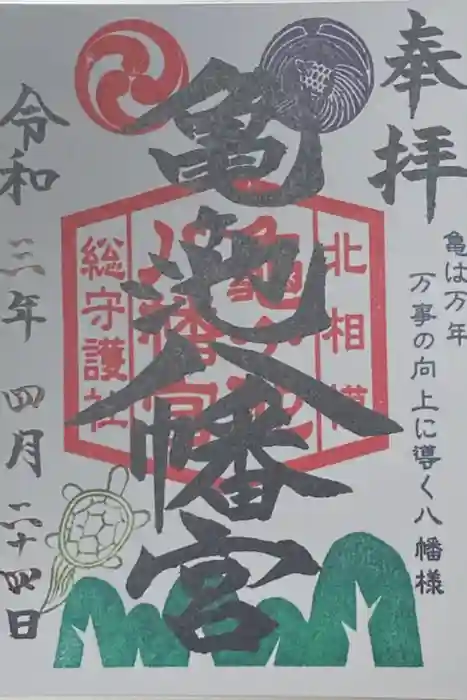 奉拝
亀は万年
万事の向上に導く八幡様
亀池八幡宮
北相模
亀の池
八幡宮
総守護社
令和三年四月二十四日